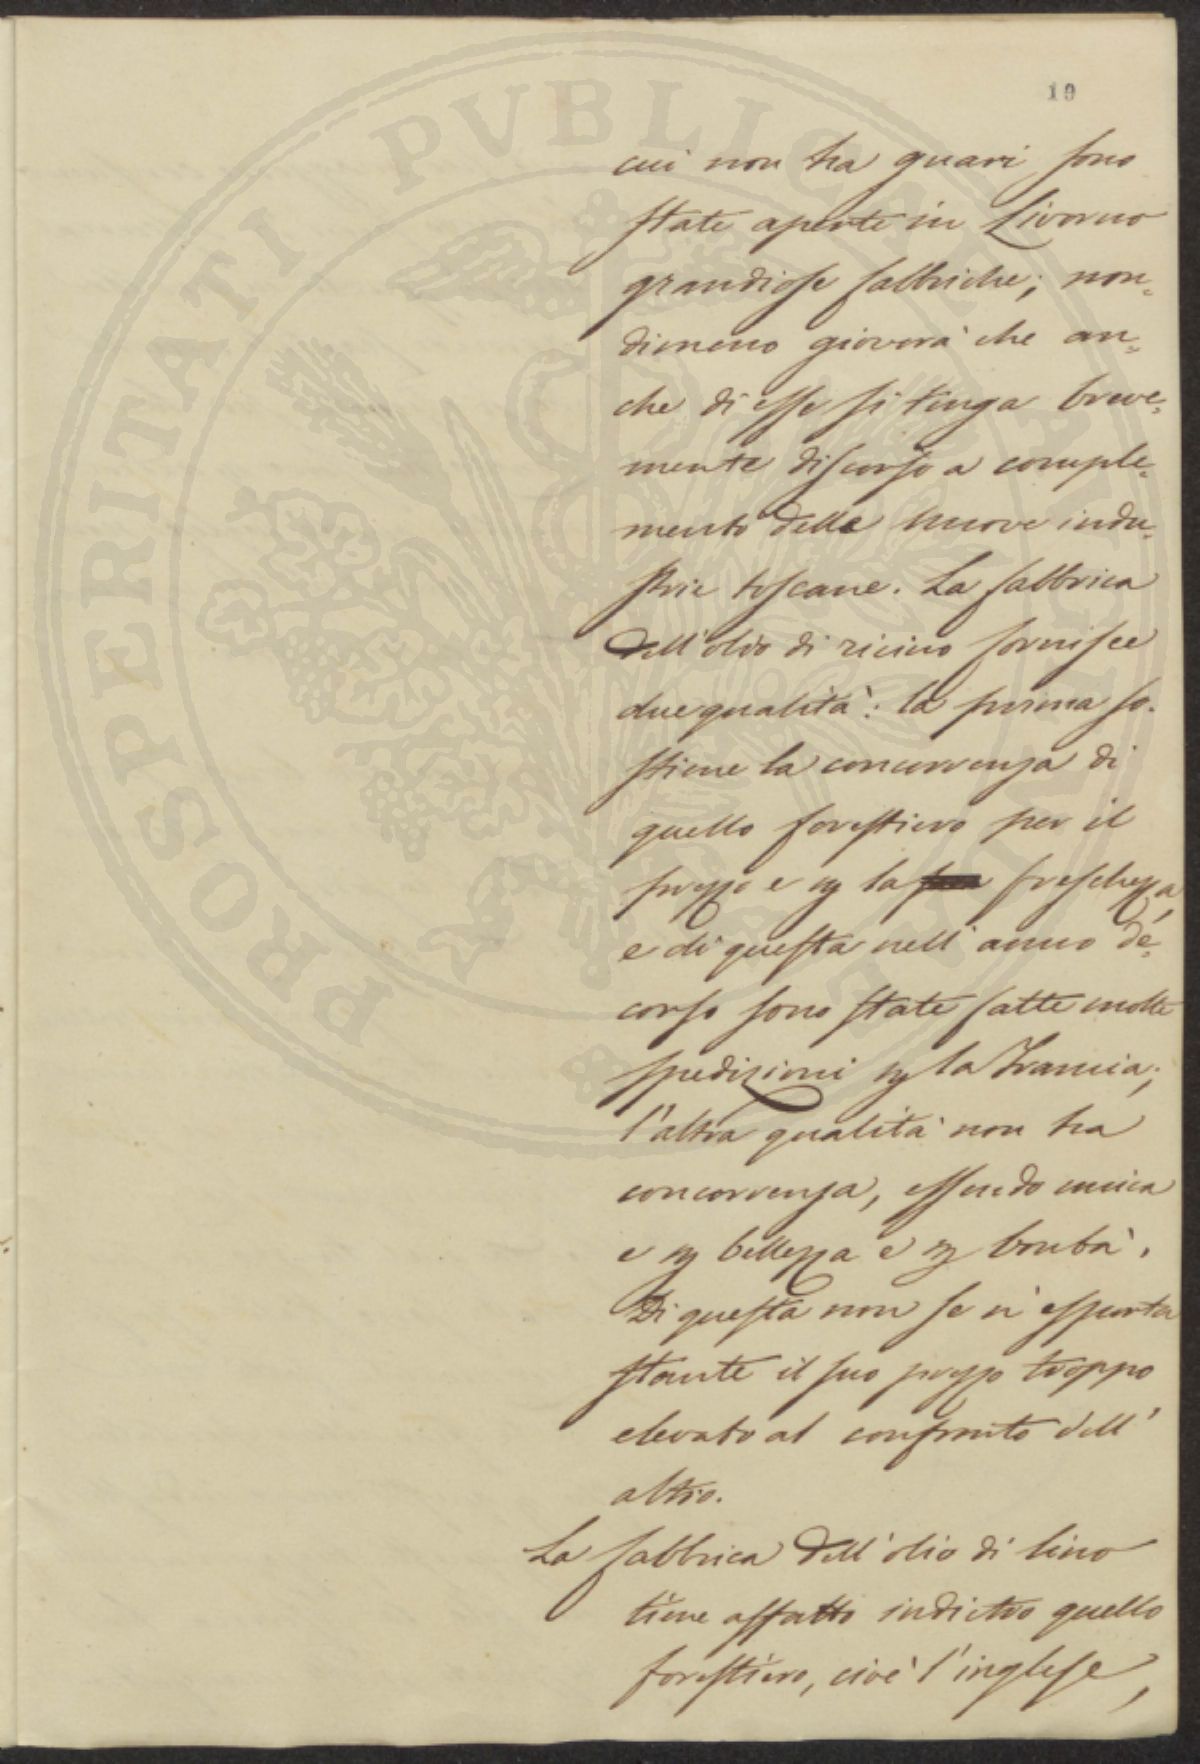 PROSPERITATI PVBLICAE AVGENDAE
19
cui non ha guari sono
state aperte in Livorno
grandiose fabbriche; non=
dimeno gioverà che an=
che di esse si tenga breve=
mente discorso a comple=
mento delle nuove indu=
strie toscane. La fabbrica
dell'olio di ricino fornisce
due qualità: la prima so-
stiene la concorrenza di
quello forestiero per il
prezzo e per la freschezza,
e di questa nell'anno de=
corso sono state fatte molte
spedizioni per la Francia;
l'altra qualità non ha
concorrenza, essendo unica
e per bellezza e per bontà.
Di questa non se n'esporta
stante il suo prezzo troppo
elevato al confronto dell'
altro.
La fabbrica dell'olio di lino
tiene affatto indietro quello
forestiero, cioè l'inglese,